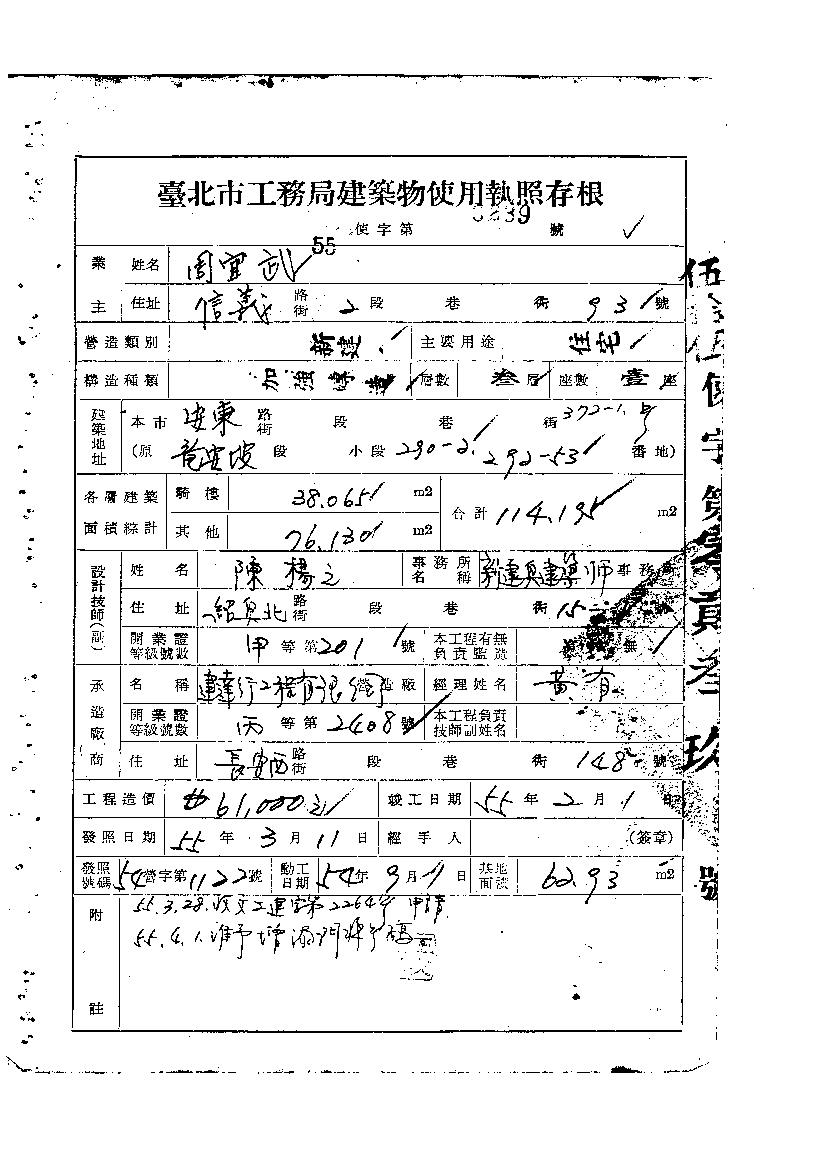 臺北市工務局建築物使用執照存根
55 使字第 0239 號
業主 姓名 周宜武
住址 信義 路街 2 段 巷 衖 93 號
營造類別 新建 主要用途 住宅
構造種類 加強磚造 層數 叁層 座數 壹座
建築地址 本市 安東 路街 段 巷 衖 372-1號
(原 龍安坡 段 小段 290-2. 292-53 番地)
各層建築面積綜計 騎樓 38.065 m2 合計 114.195 m2
其他 76.130 m2
設計技師(副) 姓名 陳楊之 事務所名稱 建築师事務所
住址 紹興北 路街 段 巷 衖 15
開業證等級號數 甲 等第 201 號 本工程有無負責監造 無
承造廠商 名稱 建達行工程有限公司 營造廠 經理姓名 黃有
開業證等級號數 丙 等第 2408 號 本工程負責技師副姓名
住址 長安西 路街 段 巷 衖 148 號
工程造價 61,000元 竣工日期 55 年 2 月 1 日
發照日期 55 年 3 月 11 日 經手人 (簽章)
發照號碼 54 營字第 1122 號 動工日期 54 年 9 月 1 日 基地面積 62.93 m2
附註 55.3.28.收文工建字第2264號申請
55.4.1.准予增添門牌號碼
伍拾伍使字第零貳叁玖號